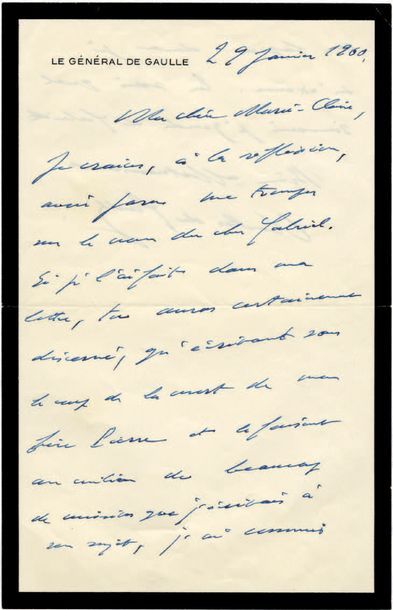 LE GÉNÉRAL DE GAULLE
29 janvier 1960.
Ma chère Marie-Claire,
Je crains, à la réflexion,
avoir me tromper
sur le nom du cher Gabriel.
Si je l'ai fait dans ma
lettre, tu auras certainement
discerné, qu'écrivant sous
le coup de la mort de mon
frère Pierre et le faisant
au milieu de beaucoup
de missives que j'écrivais à
son sujet, j'ai commis